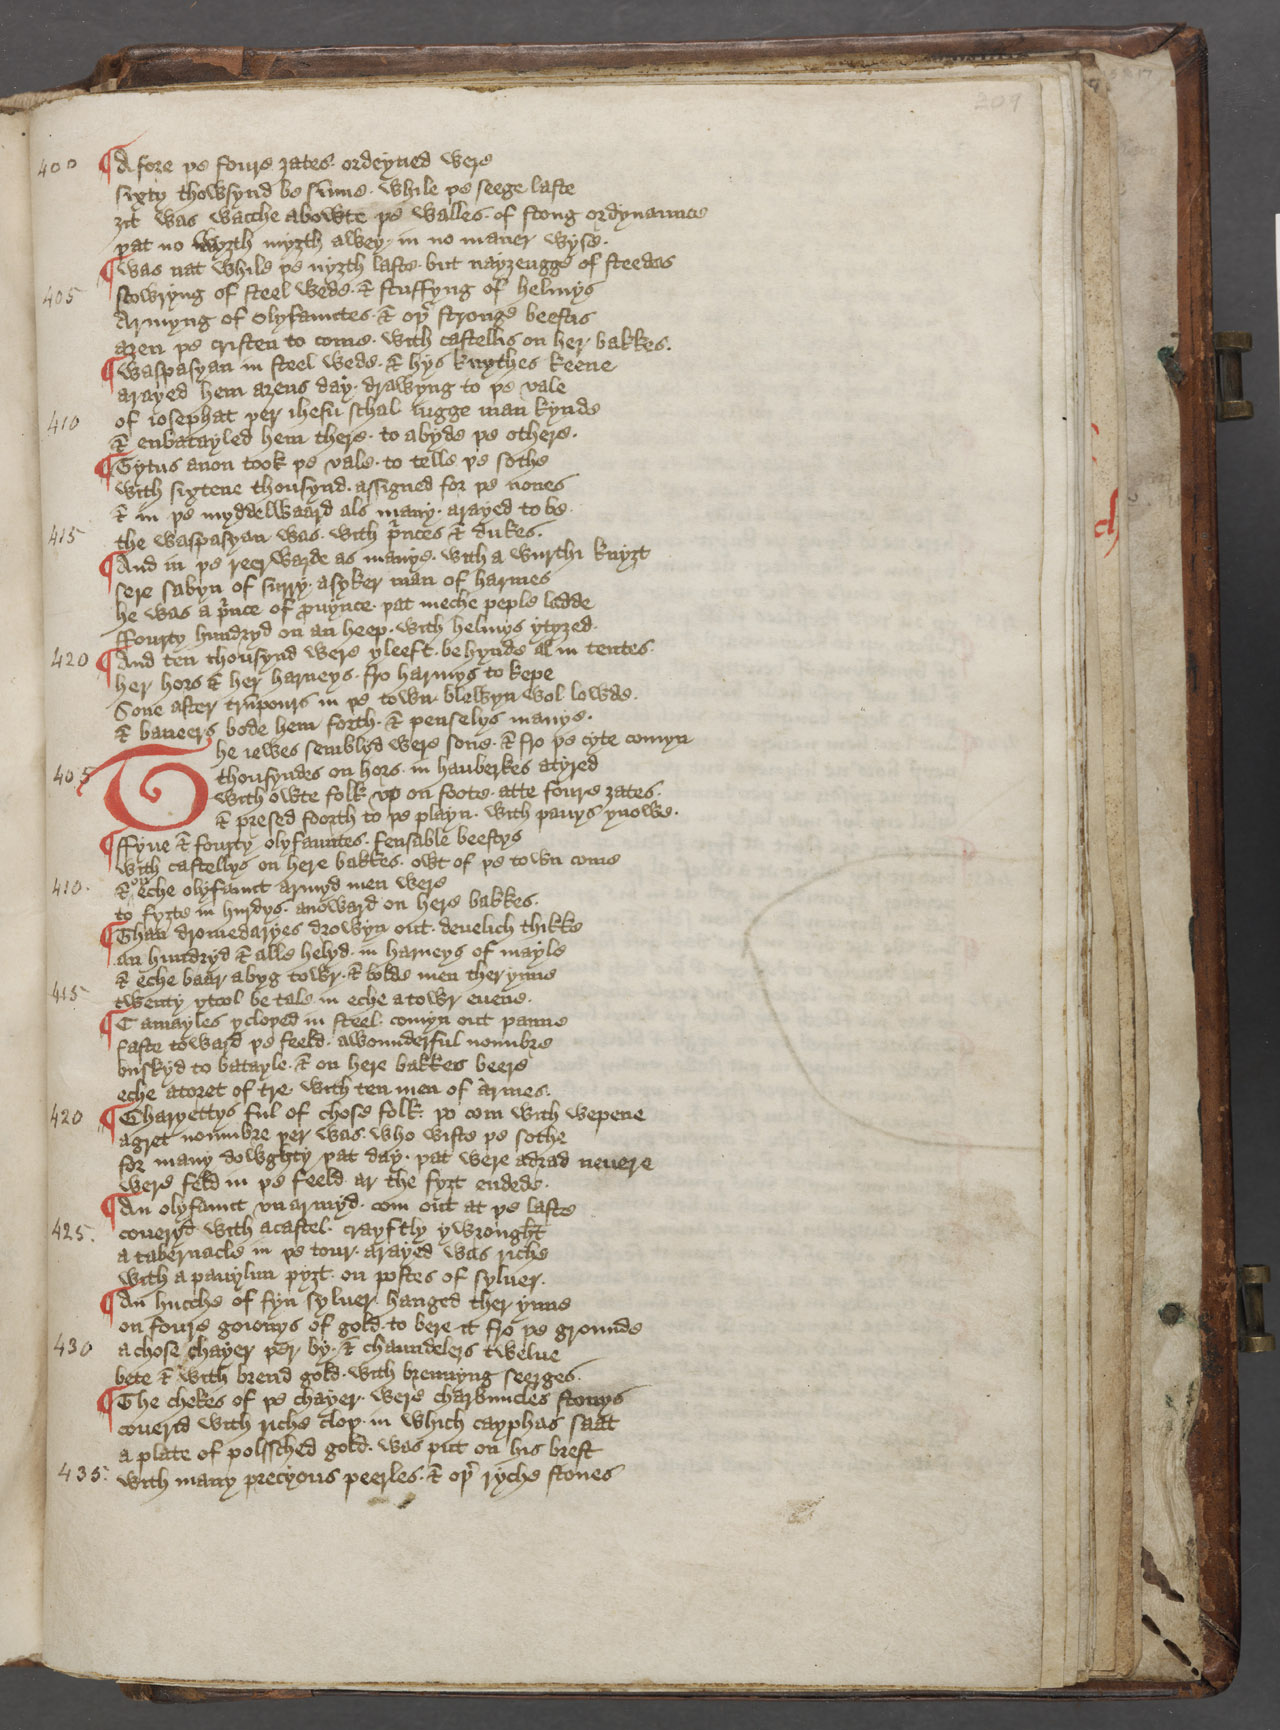 209
400 ¶ A fore þe foure ȝates · ordeyned were
sixty thowsynd be sūme · while þe seege laste
ȝit was wacche abowte þe walles · of stong ordynaunce
þat no wyȝth myȝth awey · in no maner wyse ·
¶ was nat while þe nyȝth laste · but nayȝengge of steedes
405 stowryng of steel wede · & stuffyng of helmys
Armyng of olyfauntes · & oþ̉ stronge beestis
aȝen þe cristen to come · with castellis on her bakkes ·
¶ waspasyan in steel wede · & hys knythes keene
arayed hem aȝens day · drawyng to þe vale
410 of iosephat þer ihesu schal · iugge man kynde
& enbatayled hem there · to abyde þe othere ·
¶ Tytus anon took þe vale · to telle þe sothe
with sixtene thousynd · assigned for þe nones
& in þe myddelwaard als many · arayed to be ·
415 the waspasyan was · with p̉nces & dukes ·
¶ And in þe reerwarde as manye · with a wurthi knyȝt
sere sabyn of surry · a syker man of harmes
he was a p̉nce of ꝓuynce · þat meche peple ledde
ffourty hundryd on an heep · with helmys ytyȝed ·
420 ¶ And ten thousynd were yleeft · be hynde al in tentes ·
her hors & her harneys · fro harmys to kepe
Sone after trūpours in þe town · blewyn wol lowde ·
& baneers bode hem forth · & penselys manye ·
The iewes semblyd were sone · & fro þe cyte comyn
405 thousyndes on hors · in hauberkes atyred
with owte folk vp on foote · atte foure ȝates ·
& presed foorth to þe playn · with pauys ynowe ·
¶ ffyue & fourty olyfauntes · fensable beestys
with castellys on here bakkes · owt of þe town come
410 · & on eche olyfaunt armyd men were
to fyȝte in hurdys · anoward on here bakkes ·
¶ Than dromedaryes drowyn out · deuelich thikke
an hundryd & alle helyd · in harneys of mayle
& eche baar a byg towr · & bolde men ther ynne
415 twenty ytool be tale · in eche a towr euene ·
¶ Camayles ycloyed in steel · comyn out þanne
faste toward þe feeld · a wounderful noumbre
buskyd to batayle · & on here bakkes beere
eche a toret of tre · with ten men of armes ·
420 ¶ Charyettys ful of chose folk · þo com with wepene
a gret noumbre þer was · who wiste þe sothe
for many dowghty þat day · þat were adrad neuere
were feld in þe feeld · ar the fyȝt endede ·
¶ An olyfaunt vnarmyd · com out at þe laste
425 · coueryd with a castel · crayftly ywrought
a tabernacle in þe tour · arayed was riche
with a pauylun pyȝt · on postes of syluer ·
¶ An hucche of fyn syluer · hanged ther ynne
on foure goionys of gold · to bere it fro þe grounde
430 a chose chayer þer by · & chaundelers twelue
bete & with brend gold · with brennyng seerges ·
¶ The chekes of þe chayer · were charbuncles stonys
couerid with riche cloþ · in which cayphas saat
a plate of polssched gold · was put on his brest
435 · with many precyous peerles · & oþ̉ ryche stones
d